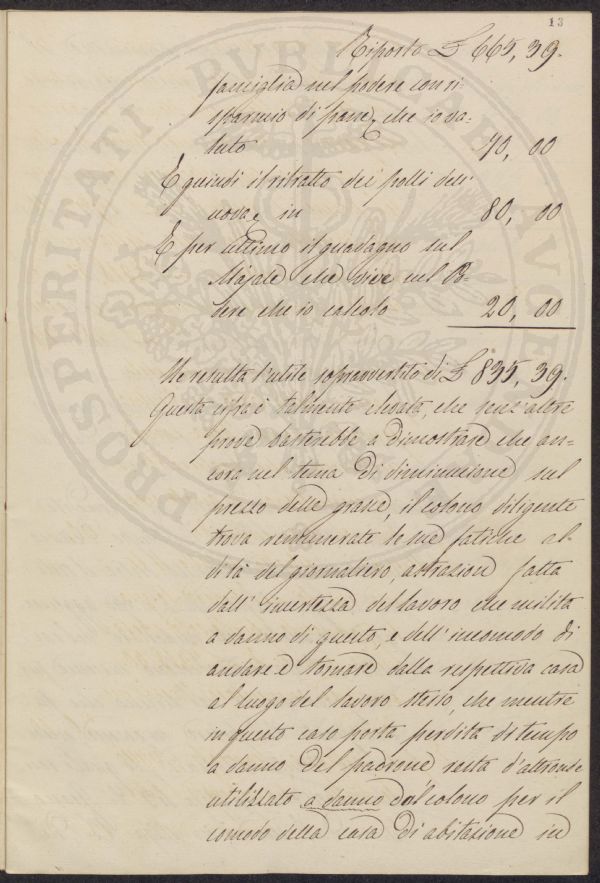 13
Riporto £ 665, 39.
famiglia nel podere con ri-
sparmio di pane, che io va-
luto 70, 00
E quindi il ritratto dei polli dell'
uova, in 80, 00
E per ultimo il guadagno sul
Majale che vive sul Po-
dere che io calcolo 20, 00
Ne resulta l'utile sopravvertito di £ 835, 39.
Questa cifra è talmente elevata, che senz'altre
prove basterebbe a dimostrare che an-
cora nel tema di diminuzione sul
prezzo delle grasce, il colono diligente
trova remunerate le sue fatiche al
di là del giornaliero, astrazion fatta
dall' incertezza del lavoro che milita
a danno di questo, e dell' incomodo di
andare e tornare dalla respettiva casa
al luogo del lavoro stesso, che mentre
in questo caso porta perdita di tempo
a danno del padrone resta d'altronde
utilizzato a danno dal colono per il
comodo della casa di abitazione in
PROSPERITATI PVBLICAE AVGENDAE